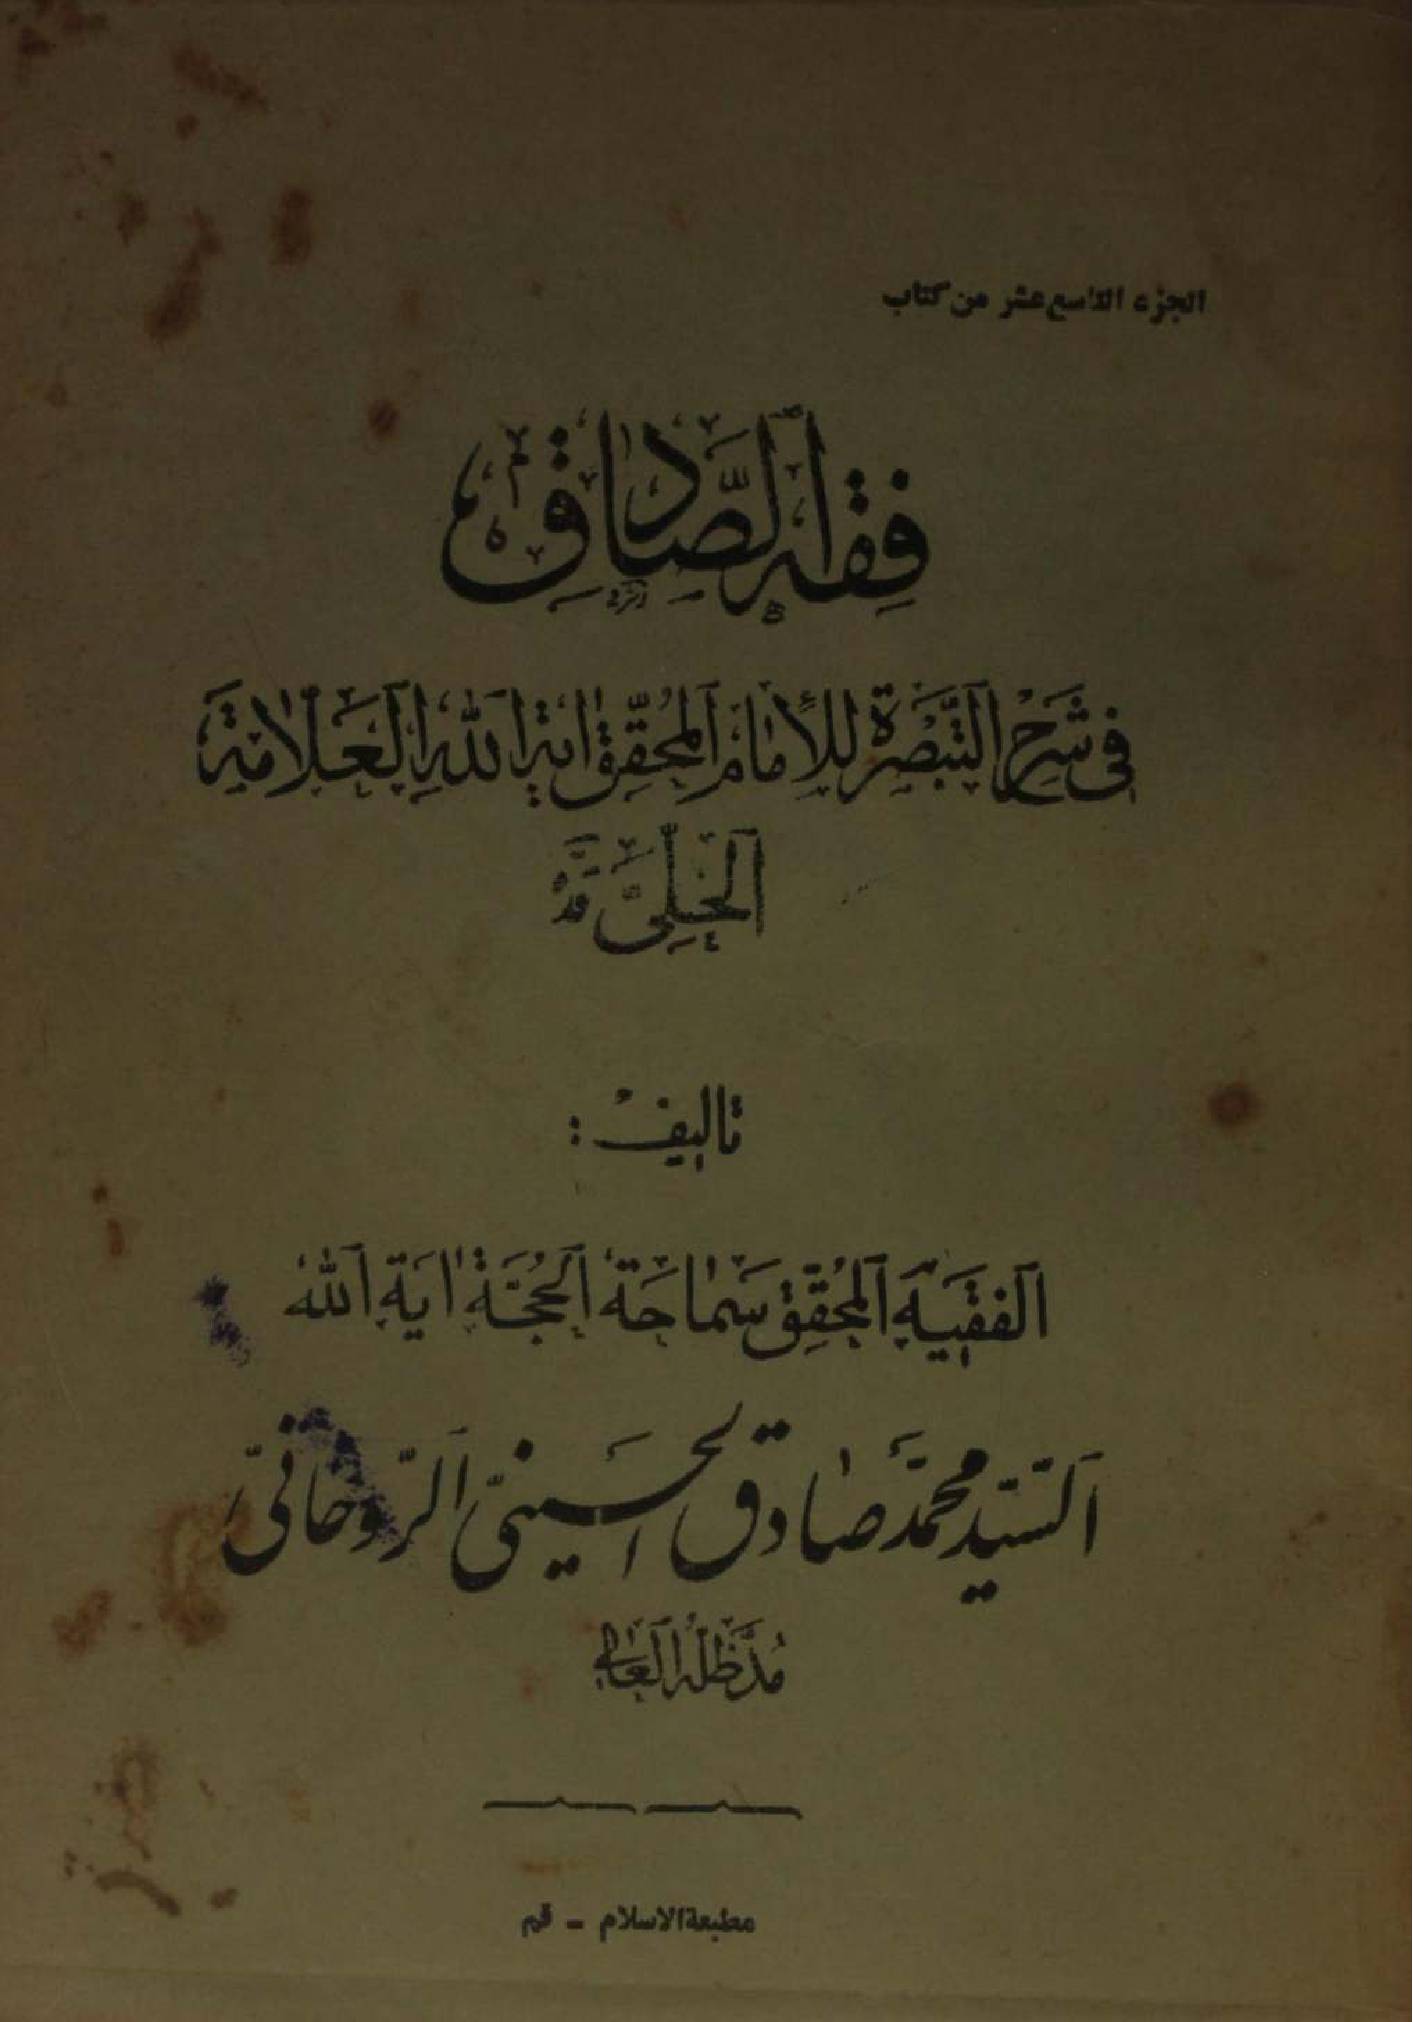 الجزء التاسع عشر من كتاب
فِقهُ الصَّادِقِ
فى شَرْحِ التَّبْصِرَةِ لِلإمَامِ المُحَقِّقِ ايَةِ اللهِ العَلّامَةِ
الحِلِّىِّ قده
تاليفْ :
الفقيه المُحقِّق سَماحَة الحُجَّة ايَة الله
السّيّد محمّد صَادق الحسينىّ الرّوحانىّ
مُدَّظِلُّهُ العَالى
مطبعة الاسلام - قم